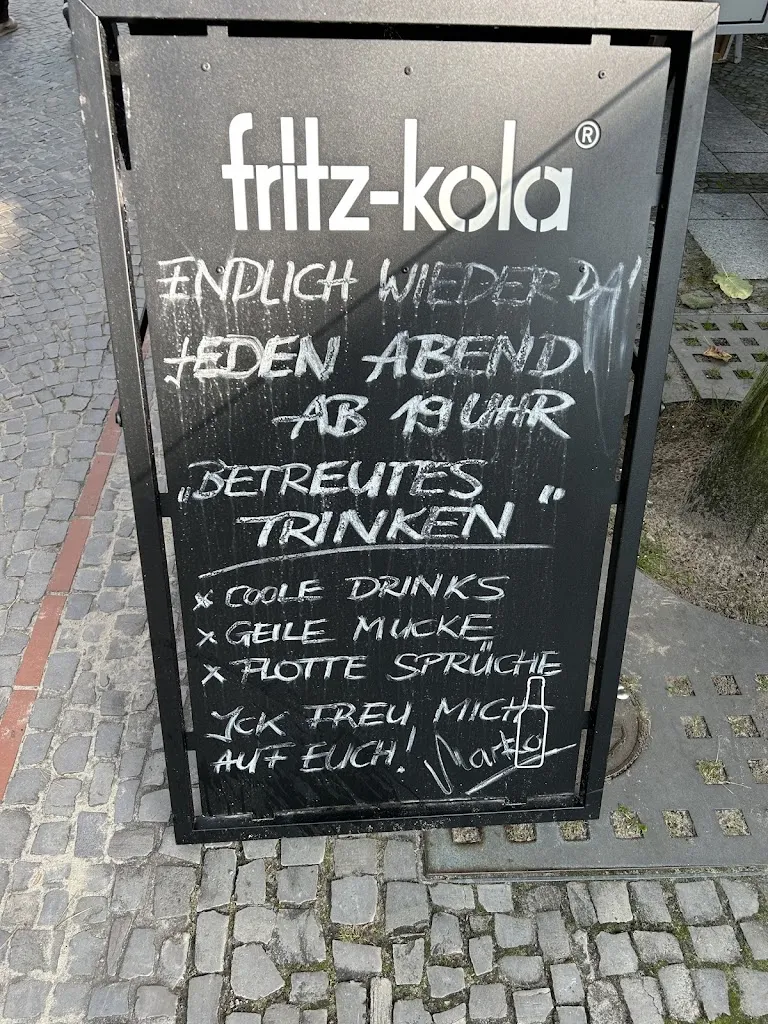 fritz-kola®
ENDLICH WIEDER DA!
JEDEN ABEND
AB 19 UHR
„BETREUTES
TRINKEN“
x COOLE DRINKS
x GEILE MUCKE
x FLOTTE SPRÜCHE
ICK FREU MICH
AUF EUCH! Marko